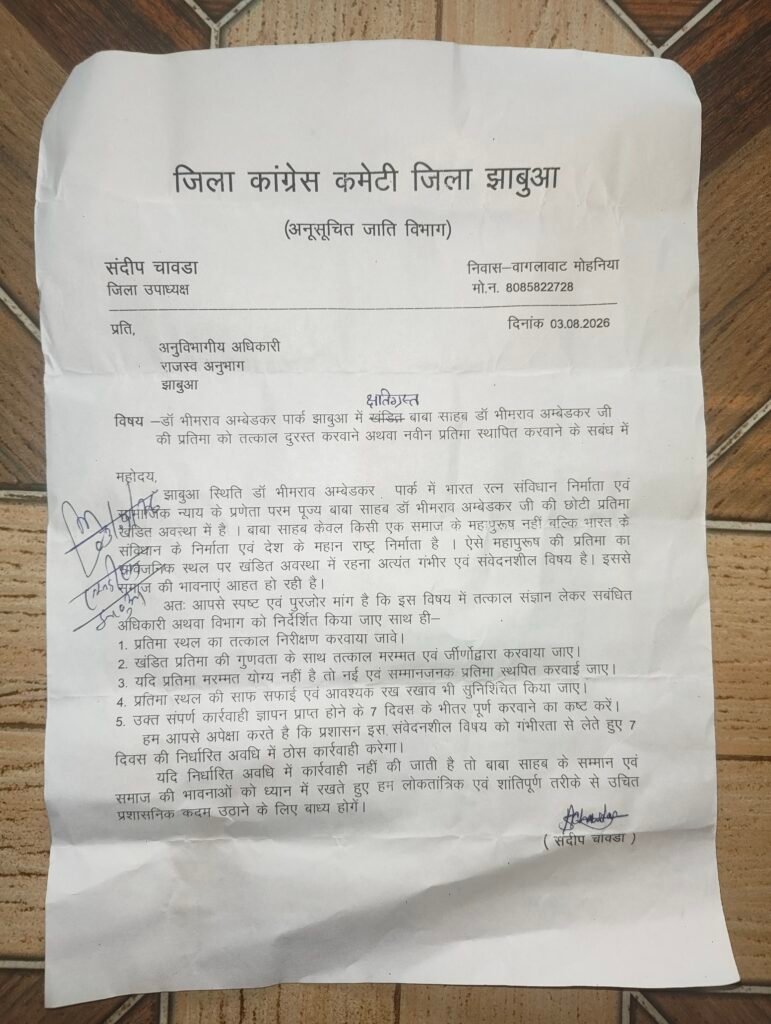 जिला कांग्रेस कमेटी जिला झाबुआ
(अनूसूचित जाति विभाग)
संदीप चावडा
जिला उपाध्यक्ष
निवास–वागलावाट मोहनिया
मो.न. 8085822728
प्रति,
दिनांक 03.08.2026
अनुविभागीय अधिकारी
राजस्व अनुभाग
झाबुआ
क्षतिग्रस्त
विषय –डॉ भीमराव अम्बेडकर पार्क झाबुआ में खंडित बाबा साहब डॉ भीमराव अम्बेडकर जी
की प्रतिमा को तत्काल दुरस्त करवाने अथवा नवीन प्रतिमा स्थापित करवाने के सबंध में
महोदय,
झाबुआ स्थिति डॉ भीमराव अम्बेडकर पार्क में भारत रत्न संविधान निर्माता एवं
सामाजिक न्याय के प्रणेता परम पूज्य बाबा साहब डॉ भीमराव अम्बेडकर जी की छोटी प्रतिमा
खंडित अवस्था में है । बाबा साहब केवल किसी एक समाज के महापुरूष नहीं बल्कि भारत के
संविधान के निर्माता एवं देश के महान राष्ट्र निर्माता है । ऐसे महापुरूष की प्रतिमा का
सार्वजनिक स्थल पर खंडित अवस्था में रहना अत्यंत गंभीर एवं संवेदनशील विषय है। इससे
समाज की भावनाएं आहत हो रही है।
अतः आपसे स्पष्ट एवं पुरजोर मांग है कि इस विषय में तत्काल संज्ञान लेकर सबंधित
अधिकारी अथवा विभाग को निर्देशित किया जाए साथ ही–
1. प्रतिमा स्थल का तत्काल निरीक्षण करवाया जावे।
2. खंडित प्रतिमा की गुणवता के साथ तत्काल मरम्मत एवं जीर्णोद्वारा करवाया जाए।
3. यदि प्रतिमा मरम्मत योग्य नहीं है तो नई एवं सम्मानजनक प्रतिमा स्थपित करवाई जाए।
4. प्रतिमा स्थल की साफ सफाई एवं आवश्यक रख रखाव भी सुनिश्चित किया जाए।
5. उक्त संपर्ण कार्रवाही ज्ञापन प्राप्त होने के 7 दिवस के भीतर पूर्ण करवाने का कष्ट करें।
हम आपसे अपेक्षा करते है कि प्रशासन इस संवेदनशील विषय को गंभीरता से लेते हुए 7
दिवस की निर्धारित अवधि में ठोस कार्रवाही करेगा।
यदि निर्धारित अवधि में कार्रवाही नहीं की जाती है तो बाबा साहब के सम्मान एवं
समाज की भावनाओं को ध्यान में रखते हुए हम लोकतांत्रिक एवं शांतिपूर्ण तरीके से उचित
प्रशासनिक कदम उठाने के लिए बाध्य होगें।
( संदीप चावडा )